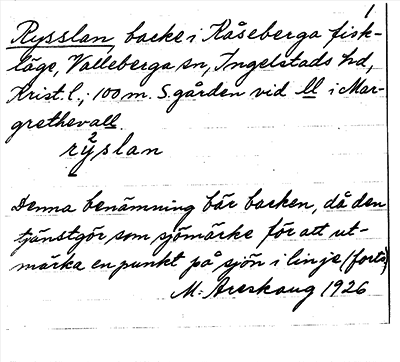 1.
Rysslan, backe i Kåseberga fisk-
läge, Valleberga sn, Ingelstads hd,
Krist. l.; 100 m. S. gården vid ll i Mar-
grethevall.
rÿ²slan
Denna benämning bär backen, då den
tjänstgör som sjömärke för att ut-
märka en punkt på sjön i linje (forts)
M: Areskoug 1926